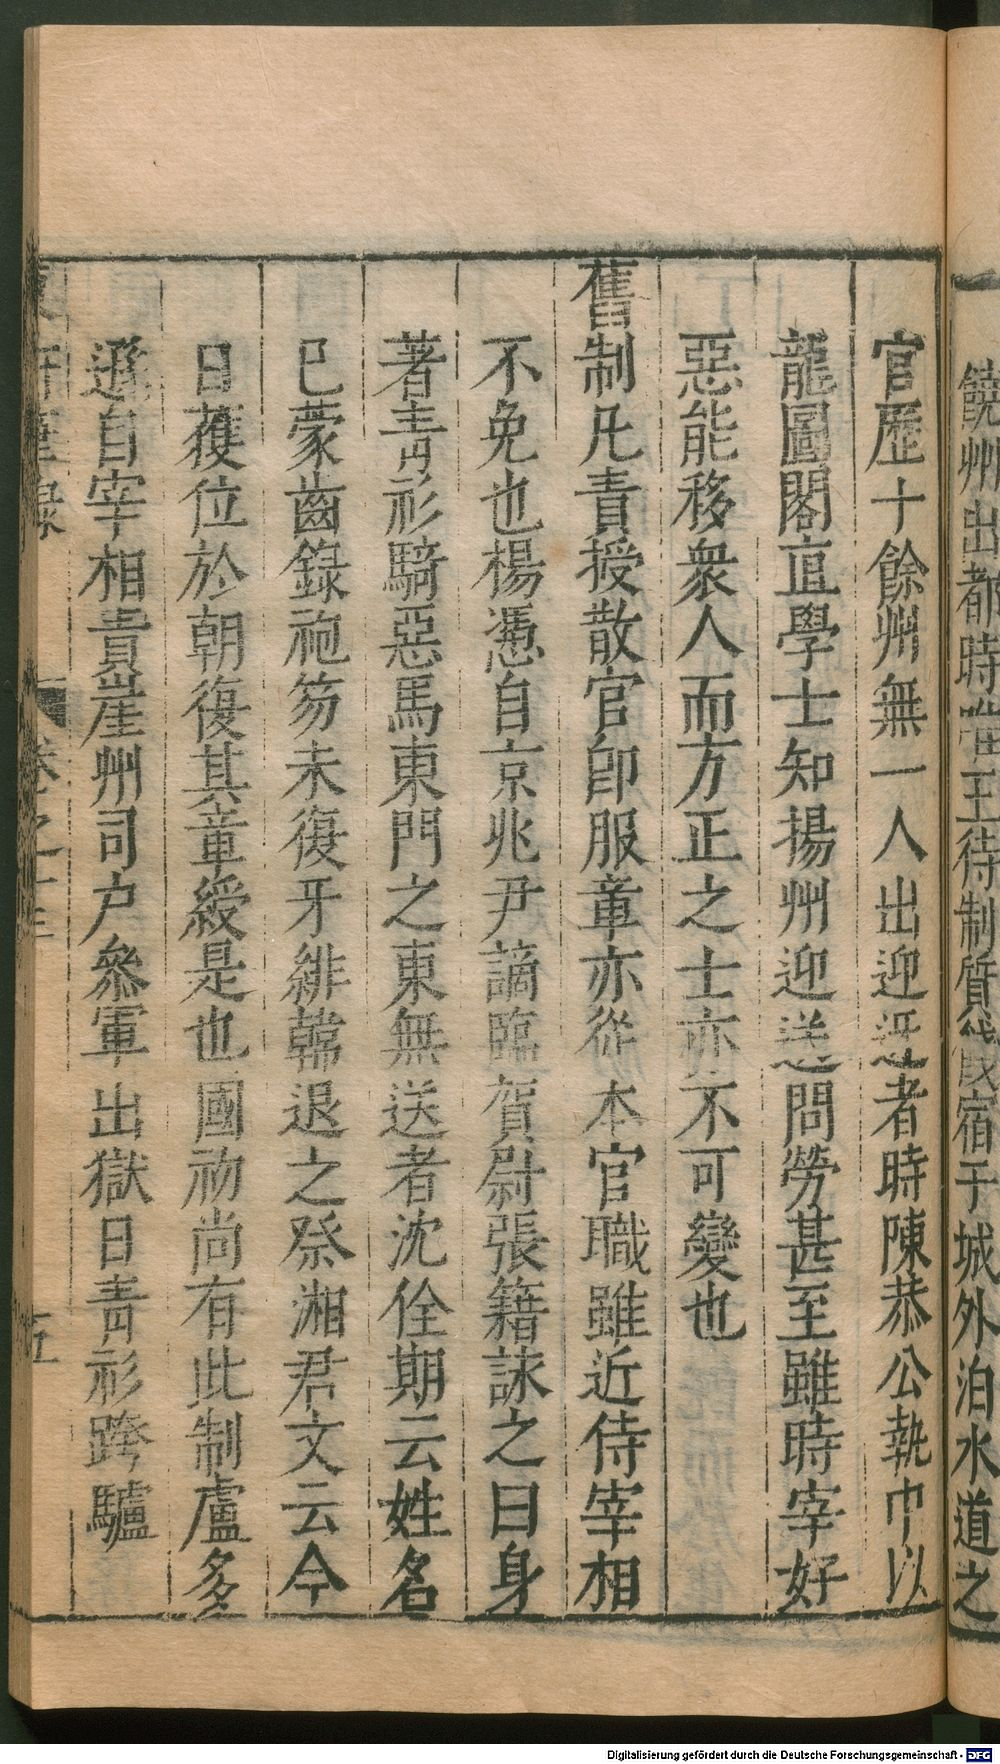 饒州出都時唯王待制質餞宿于城外泊水道之
官歷十餘州無一人出迎迓者時陳恭公執巾以
龍圖閣直學士知揚州迎送問勞甚至雖時宰好
惡能移衆人而方正之士亦不可變也
舊制凡責授散官卽服章亦從本官職雖近侍宰相
不免也楊憑自京兆尹謫臨賀尉張籍詠之曰身
著青衫騎惡馬東門之東無送者沈佺期云姓名
已蒙齒錄袍笏未復牙緋韓退之祭湘君文云今
日獲位於朝復其章綬是也國初尚有此制盧多
遜自宰相責崖州司户參軍出獄日青衫跨驢
卷之十三 五
Digitalisierung gefördert durch die Deutsche Forschungsgemeinschaft - DFG